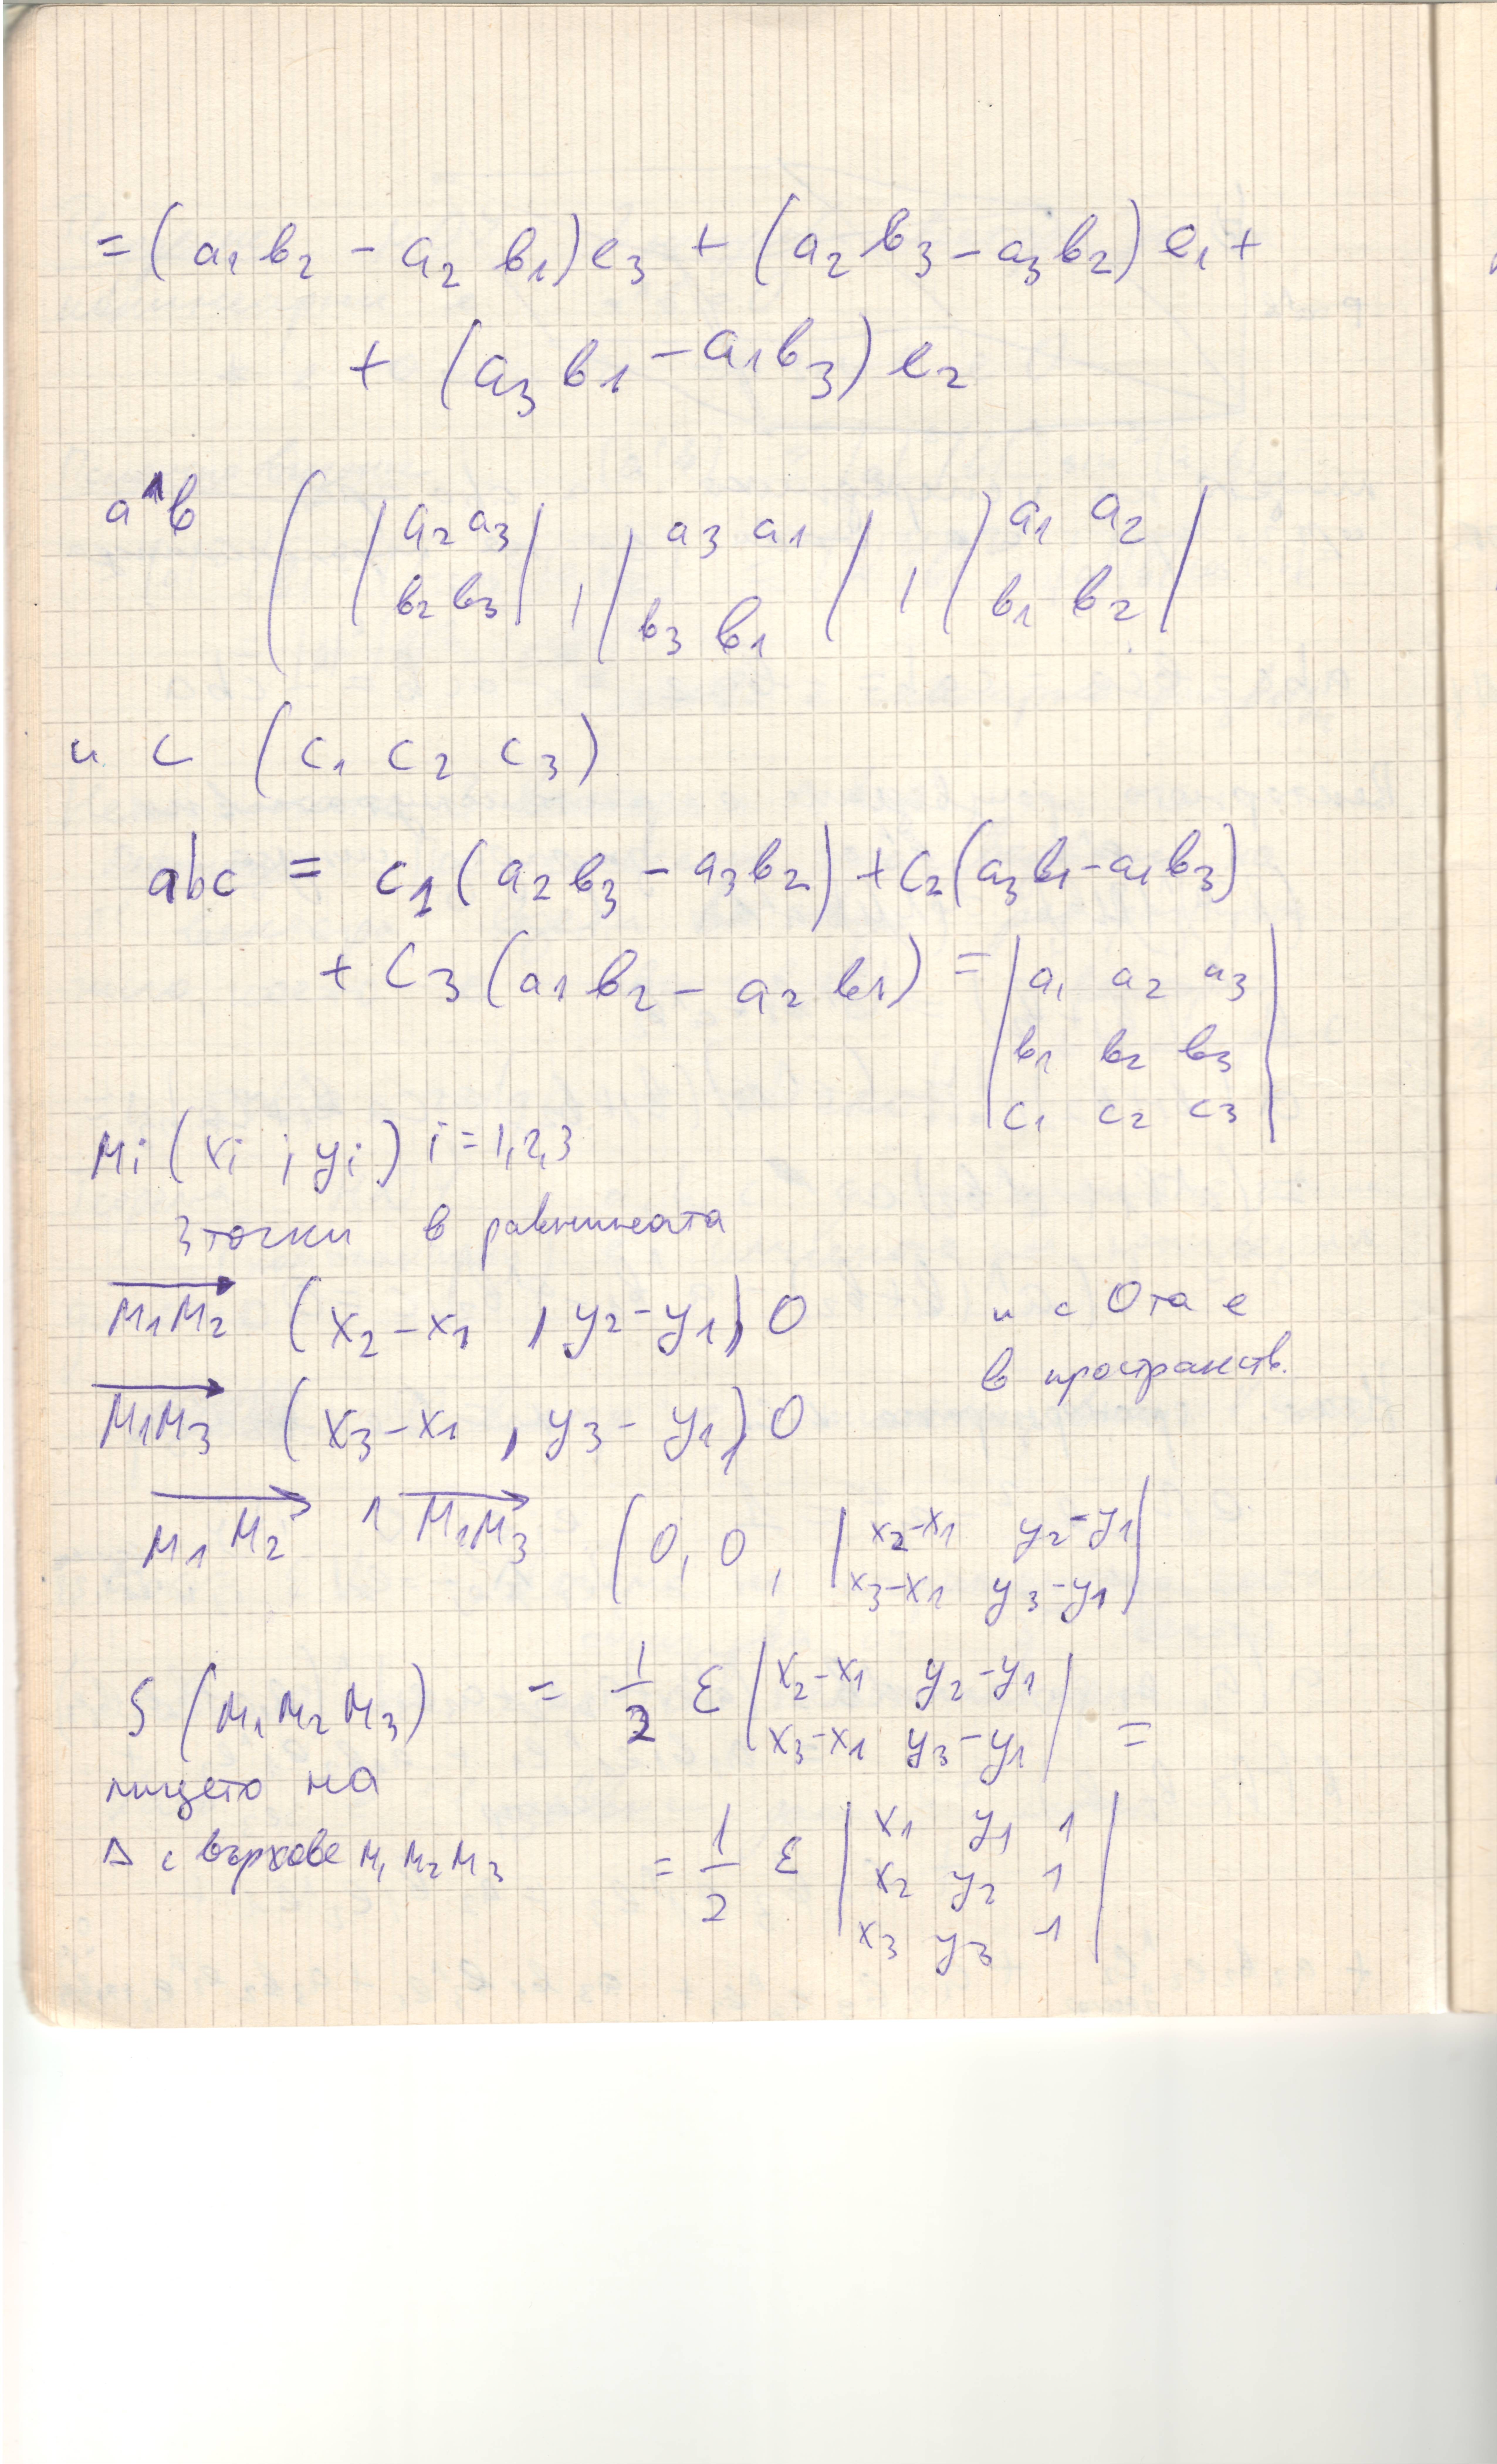 = (a₁b₂ - a₂b₁)e₃ + (a₂b₃ - a₃b₂)e₁ +
+ (a₃b₁ - a₁b₃)e₂
a∧b ( |a₂ a₃|, |a₃ a₁|, |a₁ a₂|
|b₂ b₃| |b₃ b₁| |b₁ b₂|
и c (c₁ c₂ c₃)
abc = c₁(a₂b₃ - a₃b₂) + c₂(a₃b₁ - a₁b₃)
+ c₃(a₁b₂ - a₂b₁) = |a₁ a₂ a₃|
|b₁ b₂ b₃|
|c₁ c₂ c₃|
Mi (xi ; yi) i = 1,2,3
3 точки в равнината
M₁M₂ (x₂-x₁, y₂-y₁), 0 и с 0та е
в пространств.
M₁M₃ (x₃-x₁, y₃-y₁), 0
M₁M₂ ∧ M₁M₃ (0, 0, |x₂-x₁ y₂-y₁|
|x₃-x₁ y₃-y₁|
S (M₁M₂M₃) = 1/2 ε |x₂-x₁ y₂-y₁|
|x₃-x₁ y₃-y₁| =
лицето на
Δ с върхове M₁M₂M₃ = 1/2 ε |x₁ y₁ 1|
|x₂ y₂ 1|
|x₃ y₃ 1|